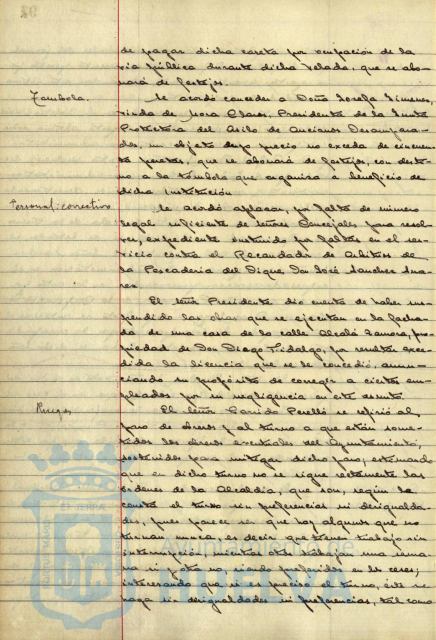 de pagar dicha caseta por ocupación de la
vía pública durante dicha Velada, que se abo-
nará de festejos.
Tombola.
Se acordó conceder a Doña Josefa Jimenez,
viuda de Mora Claros, Presidenta de la Junta
Protectora del Asilo de Ancianos Desampara-
dos, un objeto cuyo precio no exceda de cincuen-
ta pesetas, que se abonará de festejos, con desti-
no a la tómbola que organiza a beneficio de
dicha Institución
Personal: correctivo
Se acordó aplazar, por falta de número
legal suficiente de señores Concejales para resol-
ver, expediente instruido por faltas en el ser-
vicio contra el Recaudador de Arbitrios de
la Pescadería del Dique, Don José Sanchez Sua-
rez
El señor Presidente dio cuenta de haber sus-
pendido las obras que se ejecutan en la facha-
da de una casa de la calle Alcalá Zamora, pro-
piedad de Don Diego Fidalgo, por resultar exce-
dida la licencia que se le concedió, anun-
ciando su propósito de corregir a ciertos em-
pleados por su negligencia en este asunto.
Ruegos
El señor Garrido Perelló se refirió al
paro de obreros y al turno a que están some-
tidos los obreros eventuales del Ayuntamiento,
sostenidos para mitigar dicho paro, estimando
que en dicho turno no se sigue rectamente las
órdenes de la Alcaldía, que son, según le
consta el turno sin preferencias ni desigualda-
des, pues parece ser que hay algunos que no
turnan nunca, es decir que tienen trabajo sin
interrupción mientras otros trabajan una sema-
na si y otra no, siendo preferidos en los ceses;
interesando que si es preciso el turno, éste se
haga sin desigualdades ni preferencias, tal como